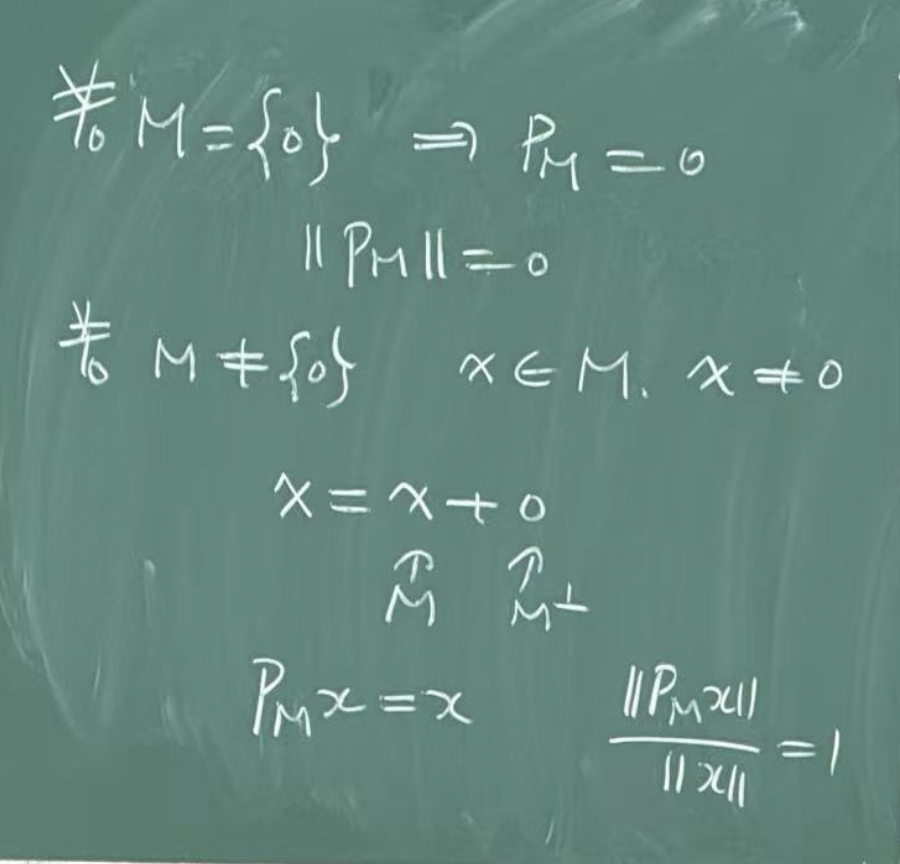 若 M = {0} ⇒ P_M = 0
||P_M|| = 0
若 M ≠ {0} x ∈ M. x ≠ 0
x = x + 0
↑ ↑
M M^⊥
P_M x = x ||P_M x|| / ||x|| = 1